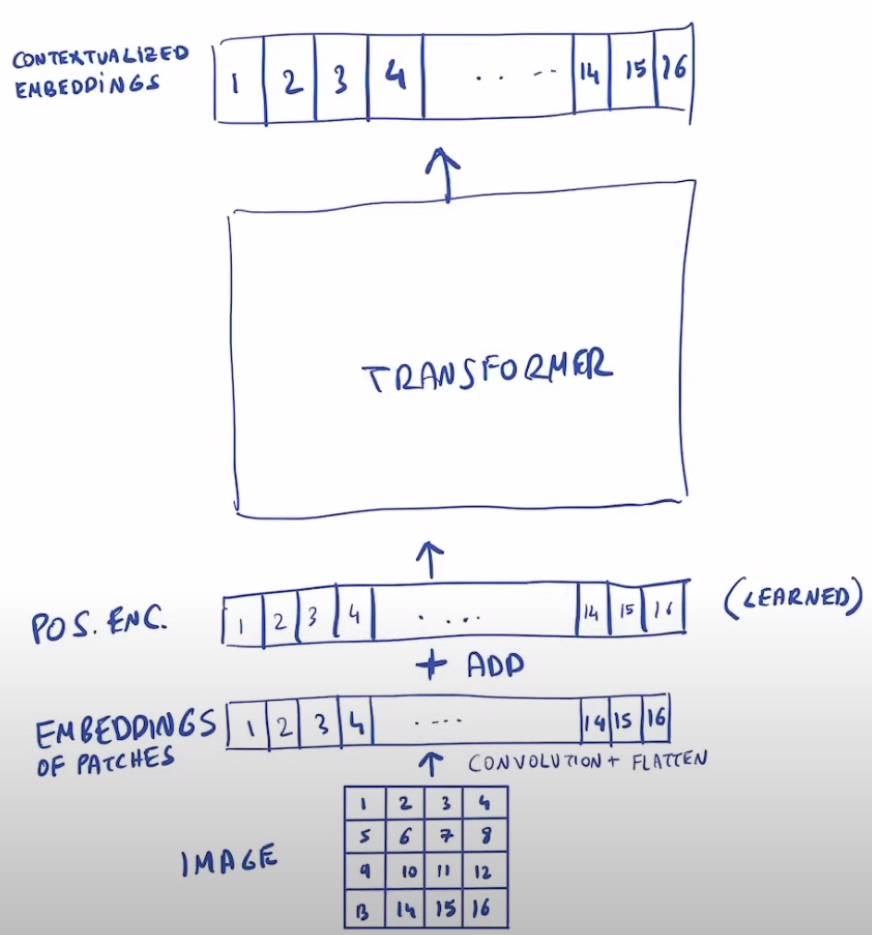 CONTEXTUALIZED
EMBEDDINGS
1 2 3 4 .. -- 14 15 16
TRANSFORMER
POS. ENC. 1 2 3 4 . ... 14 15 16 (LEARNED)
+ ADD
EMBEDDINGS
OF PATCHES
1 2 3 4 .--- 14 15 16
CONVOLUTION + FLATTEN
IMAGE
1 2 3 4
5 6 7 8
9 10 11 12
13 14 15 16